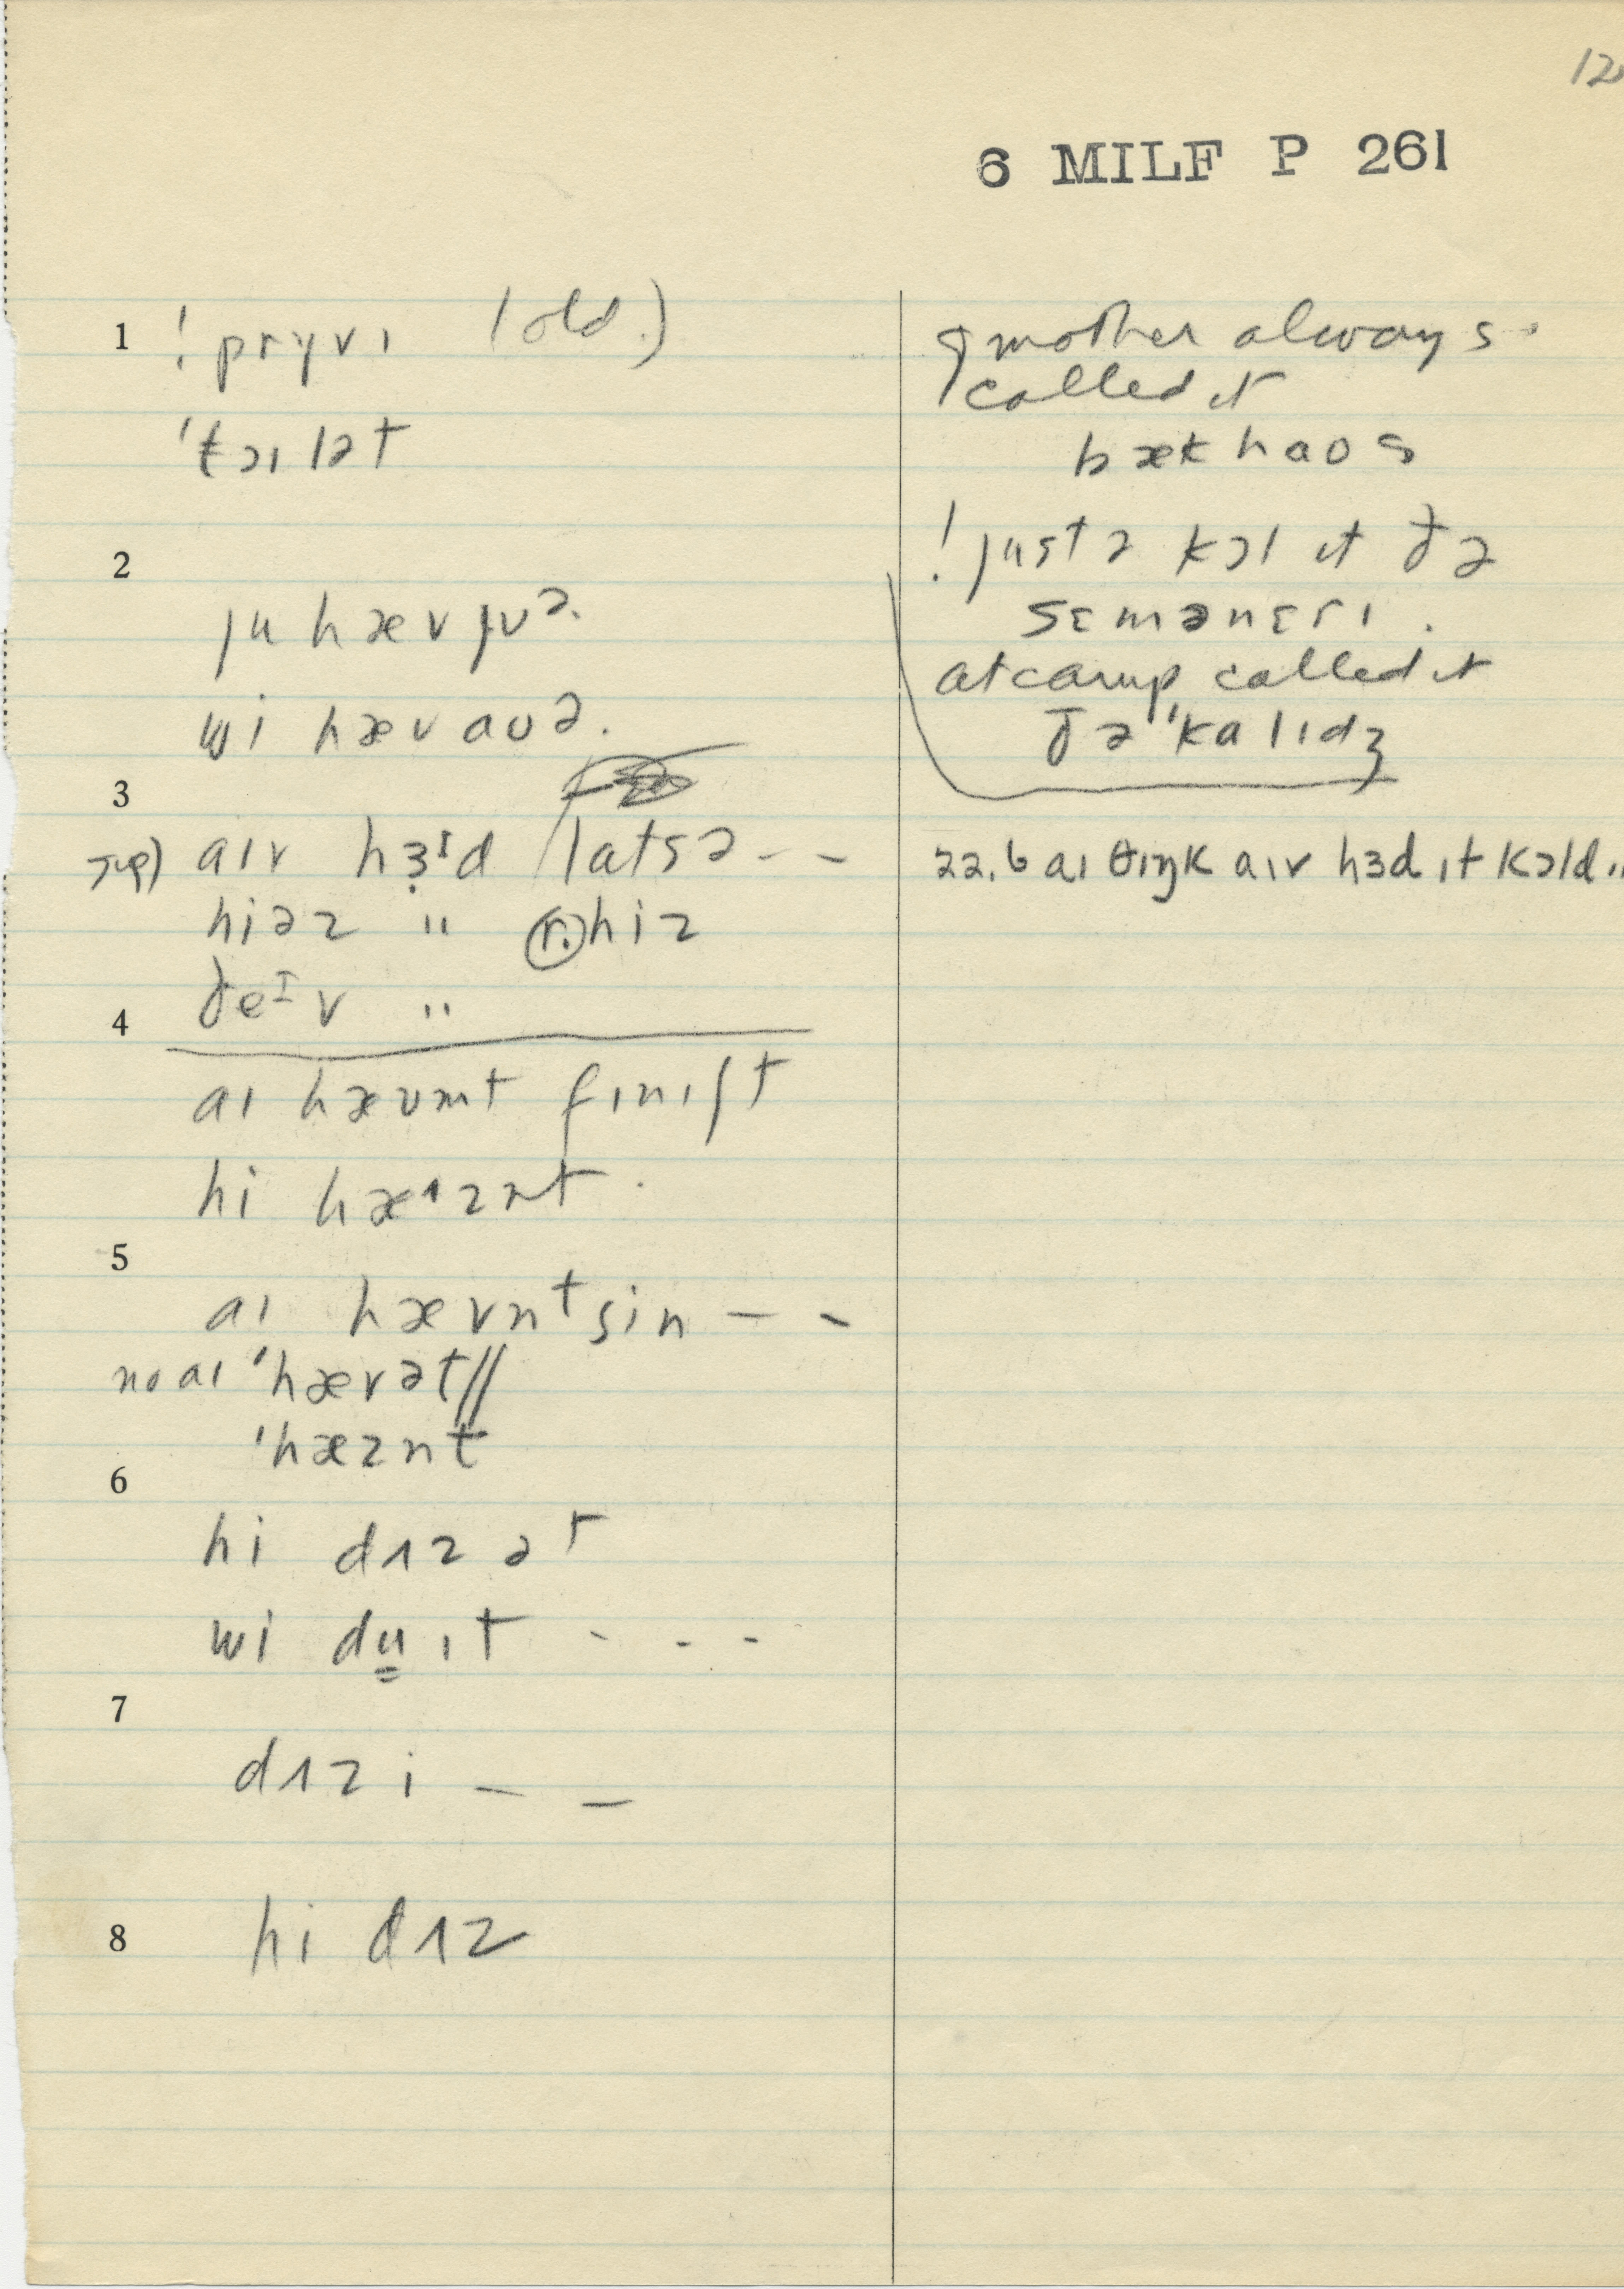 12
6 MILF P 261
1 ! prɣvɪ (old.)
'tɔɪlət
2
ju hæv jʊə.
wi hæv aʊə.
3
aɪv hɜrd latsə - -
hiəz " (r.) hiz
ðeɪv "
4
aɪ hævmt fɪnɪʃt
hi hæɪznt .
5
aɪ hævnt sin - -
no aɪ 'hævət//
'hæznt
6
hi dʌz ət
wi du ɪt - - -
7
dʌz i - -
8 hi dʌz
mother always
called it
bækhaos
! justə kɔl it ðə
sɛmənɛrɪ .
at camp called it
ðə 'kalɪdʒ
22.6 aɪ θɪŋk aɪv hɜd ɪt kɔld..